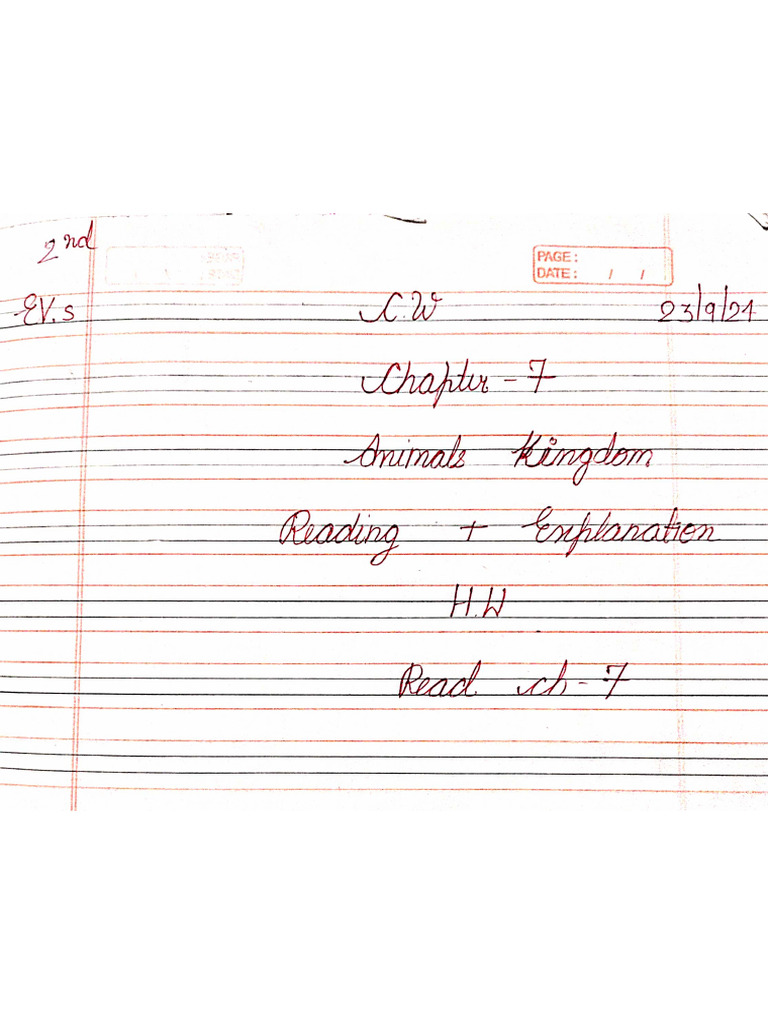 2nd
PAGE:
DATE: / /
EV.s C.W 23/9/21
Chapter - 7
Animals Kingdom
Reading + Explanation
H.W
Read ch - 7